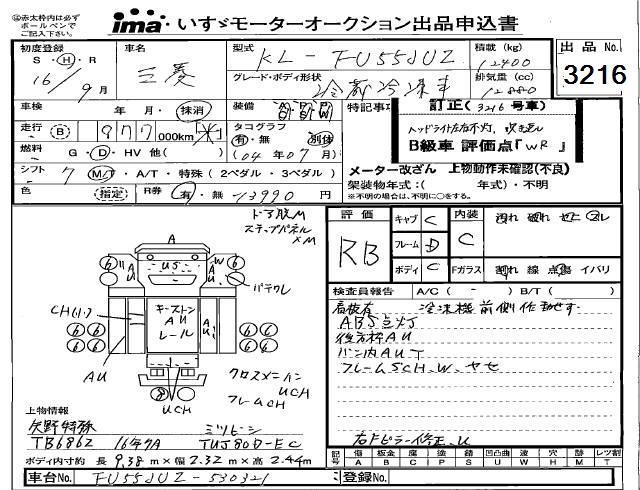 ㊟赤太枠内は必ず
ボールペンで
ご記入下さい。
ima いすゞモーターオークション出品申込書
初度登録 S・H・R 16年9月
車名 三菱
型式 KL-FU55JUZ
積載(kg) 12400
出品No. 3216
グレード・ボディ形状 冷蔵冷凍車
排気量(cc) 12880
車検 年 月・抹消
装備
特記事項
訂正(3216号車)
ヘッドライト左右不灯、吹き返し
B級車 評価点「WR」
走行 B 977 000km(米)
タコグラフ 有・無 別体
燃料 G・D・HV 他( )
(04年07月)
メーター改ざん 上物動作未確認(不良)
シフト 7 M/T・A/T・特殊(2ペダル・3ペダル)
架装物年式:( 年式)・不明
※不明の場合は、不明に○をする。
色 (指定) R券 有・無 13990円
ドア脱M
ステップパネル
×M
評価 RB
キャブ C
内装 C
汚れ 破れ
フレーム D
ボディ C
Fガラス 割れ 線 点傷 イバリ
A
AU
US
W
パテワレ
CH(小)
キーストン
AU
レール
AU
AU
クロスメーハン
UCH
フレームCH
UCH
検査員報告 A/C( - ) B/T( )
看板有 冷凍機前側作動せず
ABS点灯
後方枠AU
バン内AUT
フレームSCH、W、ヤセ
右Fピラー修正、U
上物情報
矢野特殊 ミツビシ
TB6862 16年7A TUJ80D-EC
ボディ内寸約 長 9.38 m×幅 2.32 m×高 2.44m
記号 傷 板金 座 塗 錆 凹凸曲 波 穴 跡 レツ割
A B C P S U W H M T
車台No. FU55JUZ-530321
登録No.